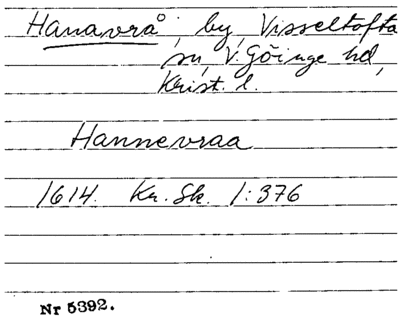 Hanavrå, by, Visseltofta
sn, V. Göinge hd,
Krist. l.
Hannevraa
1614. Kr. Sk. 1:376
Nr 5392.